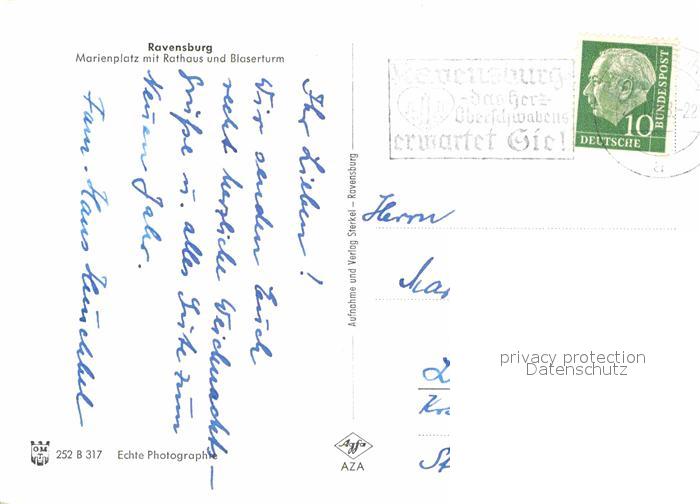 Ravensburg
Marienplatz mit Rathaus und Blaserturm
Ihr Lieben!
Wir senden Euch
recht herzliche Weihnachts-
grüße u. alles Gute zum
Neuen Jahr.
Fam. Hans
252 B 317 Echte Photographie
Aufnahme und Verlag Sterkel – Ravensburg
Agfa
AZA
Ravensburg
das Herz
Oberschwabens
erwartet Sie!
10
DEUTSCHE
BUNDESPOST
-22
a
Herrn
privacy protection
Datenschutz